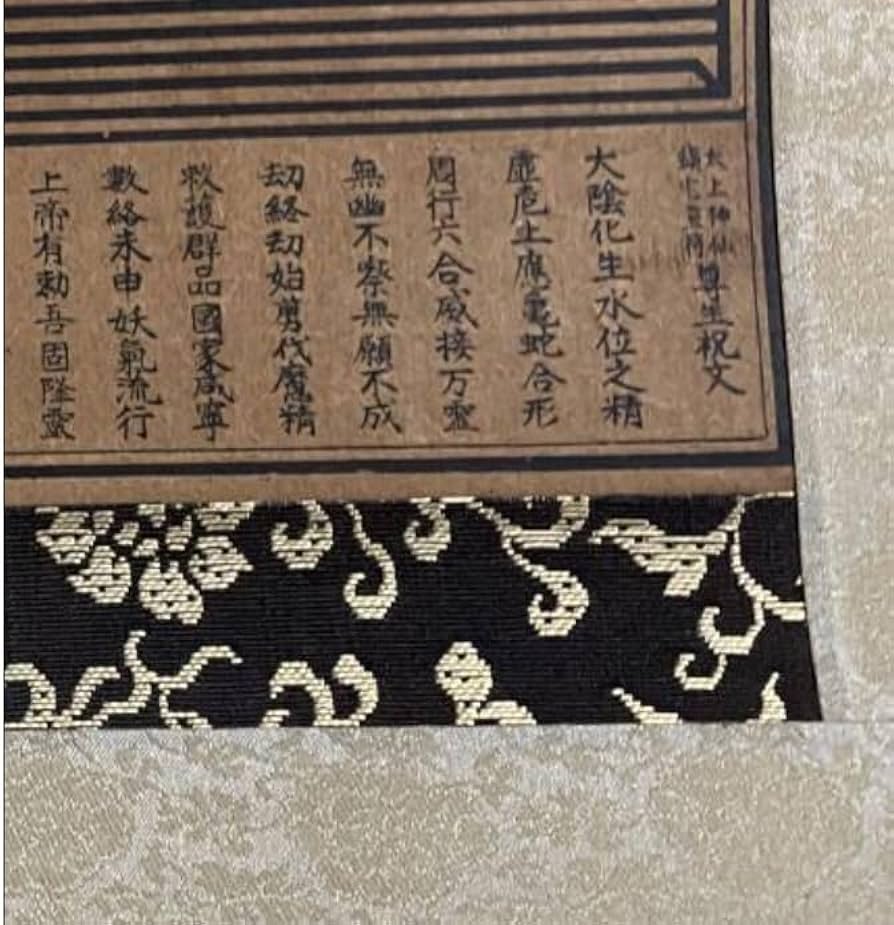 太上神仙
鎮宅霊符
尊星祝文
大陰化生水位之精
虚危上應龜蛇合形
周行六合威接万靈
無幽不察無願不成
劫終劫始剪伐魔精
救護群品國家咸寧
數終未申妖氣流行
上帝有勅吾固隆靈